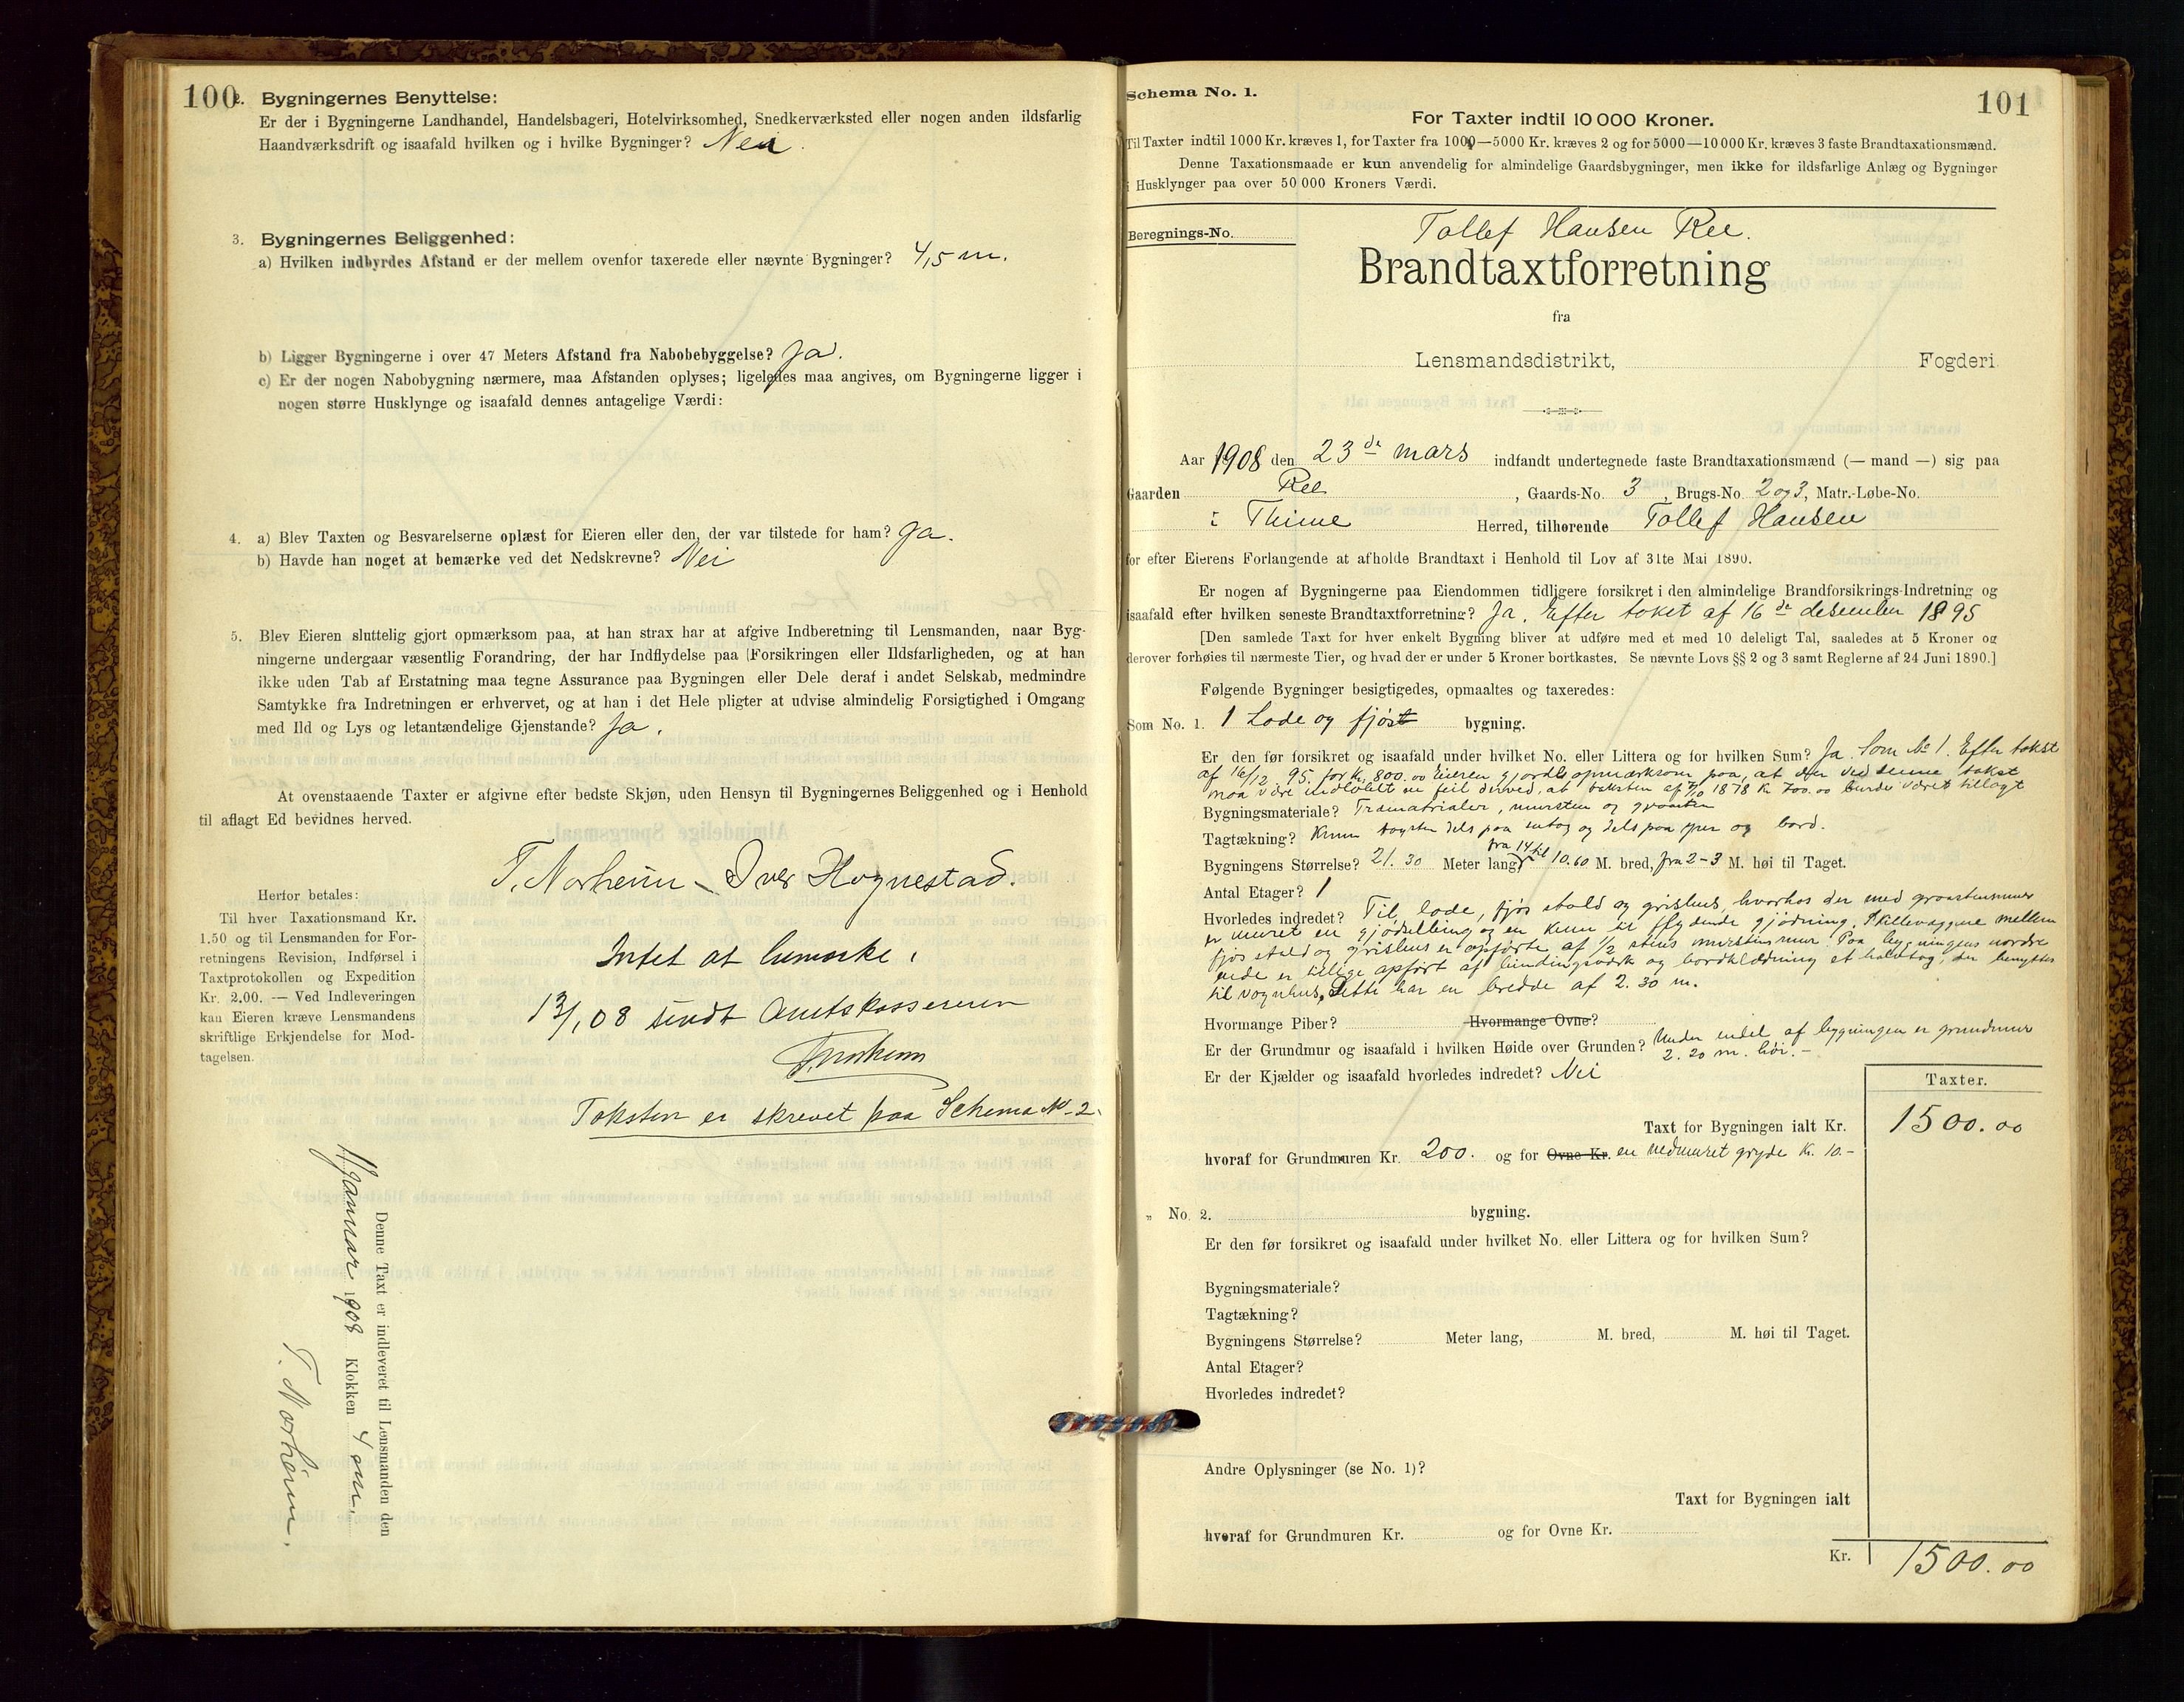 100
2. Bygningernes Benyttelse:
Er der i Bygningerne Landhandel, Handelsbageri, Hotelvirksomhed, Snedkerværksted eller nogen anden ildsfarlig
Haandværksdrift og isaafald hvilken og i hvilke Bygninger? Nei.
3. Bygningernes Beliggenhed:
a) Hvilken indbyrdes Afstand er der mellem ovenfor taxerede eller nævnte Bygninger? 4,5 m.
b) Ligger Bygningerne i over 47 Meters Afstand fra Nabobebyggelse? Ja.
c) Er der nogen Nabobygning nærmere, maa Afstanden oplyses; ligeledes maa angives, om Bygningerne ligger i
nogen større Husklynge og isaafald dennes antagelige Værdi:
4. a) Blev Taxten og Besvarelserne oplæst for Eieren eller den, der var tilstede for ham? Ja.
b) Havde han noget at bemærke ved det Nedskrevne? Nei
5. Blev Eieren sluttelig gjort opmærksom paa, at han strax har at afgive Indberetning til Lensmanden, naar Byg-
ningerne undergaar væsentlig Forandring, der har Indflydelse paa (Forsikringen eller Ildsfarligheden, og at han
ikke uden Tab af Erstatning maa tegne Assurance paa Bygningen eller Dele deraf i andet Selskab, medmindre
Samtykke fra Indretningen er erhvervet, og at han i det Hele pligter at udvise almindelig Forsigtighed i Omgang
med Ild og Lys og letantændelige Gjenstande? Ja.
At ovenstaaende Taxter er afgivne efter bedste Skjøn, uden Hensyn til Bygningernes Beliggenhed og i Henhold
til aflagt Ed bevidnes herved.
T. Norheim - Iver Hognestad.
Herfor betales:
Til hver Taxationsmand Kr.
1.50 og til Lensmanden for For-
retningens Revision, Indførsel i
Taxtprotokollen og Expedition
Kr. 2.00. — Ved Indleveringen
kan Eieren kræve Lensmandens
skriftlige Erkjendelse for Mod-
tagelsen.
Intet at bemærke.
13/1 08 sendt Amtskassereren
T. Norheim
Taksten er skrevet paa Schema No 2.
Denne Taxt er indleveret til Lensmanden den
Januar 1908 Klokken 4 em.
T. Norheim.
Schema No. 1.
101
For Taxter indtil 10 000 Kroner.
Til Taxter indtil 1000 Kr. kræves 1, for Taxter fra 1000—5000 Kr. kræves 2 og for 5000—10 000 Kr. kræves 3 faste Brandtaxationsmænd.
Denne Taxationsmaade er kun anvendelig for almindelige Gaardsbygninger, men ikke for ildsfarlige Anlæg og Bygninger
i Husklynger paa over 50 000 Kroners Værdi.
Beregnings-No.
Tollef Hansen Ree.
Brandtaxtforretning
fra
Lensmandsdistrikt, Fogderi
Aar 1908 den 23de mars indfandt undertegnede faste Brandtaxationsmænd (— mand —) sig paa
Gaarden Ree, Gaards-No. 3, Brugs-No. 2 og 3, Matr.-Løbe-No.
i Thime Herred, tilhørende Tollef Hansen
for efter Eierens Forlangende at afholde Brandtaxt i Henhold til Lov af 31te Mai 1890.
Er nogen af Bygningerne paa Eiendommen tidligere forsikret i den almindelige Brandforsikrings-Indretning og
isaafald efter hvilken seneste Brandtaxtforretning? Ja. Efter takst af 16de desember 1895
[Den samlede Taxt for hver enkelt Bygning bliver at udføre med et med 10 deleligt Tal, saaledes at 5 Kroner og
derover forhøies til nærmeste Tier, og hvad der er under 5 Kroner bortkastes. Se nævnte Lovs §§ 2 og 3 samt Reglerne af 24 Juni 1890.]
Følgende Bygninger besigtigedes, opmaaltes og taxeredes:
Som No. 1. 1 Lade og fjøst bygning.
Er den før forsikret og isaafald under hvilket No. eller Littera og for hvilken Sum? Ja. Som No 1. Efter takst
af 16/12 95 for Kr. 800.00 Eieren gjordes opmærksom paa, at der ved denne takst
maa være indløbet en feil derved, at taksten af 1878 Kr 700.00 burde været tillagt
Bygningsmateriale? Træmatrialer, mursten og graasten
Tagtækning? Krum tagsten dels paa og dels paa og bord.
Bygningens Størrelse? 21.30 Meter lang, fra 14 til 10.60 M. bred, fra 2-3 M. høi til Taget.
Antal Etager? 1
Hvorledes indredet? Til lade, fjøs stald og grishus, hvorhos der med graastensmur
er muret en gjødselbing og en kum til flydende gjødning. Skillevæggene mellem
fjøs stald og grishus er opførte af 1/2 stens murstensmur. Paa bygningens nordre
ende er tillige opført af bindingsværk og bordklædning et halvtag, der benyttes
til vognhus. Dette har en bredde af 2.30 m.
Hvormange Piber? Hvormange Ovne?
Er der Grundmur og isaafald i hvilken Høide over Grunden? Under endel af bygningen er grundmur
2.20 m. høi.-
Er der Kjælder og isaafald hvorledes indredet? Nei
Taxter.
Taxt for Bygningen ialt Kr. 1500.00
hvoraf for Grundmuren Kr. 200. og for Ovne Kr. en nedmuret gryde Kr. 10.-
" No. 2. bygning.
Er den før forsikret og isaafald under hvilket No. eller Littera og for hvilken Sum?
Bygningsmateriale?
Tagtækning?
Bygningens Størrelse? Meter lang, M. bred, M. høi til Taget.
Antal Etager?
Hvorledes indredet?
Andre Oplysninger (se No. 1)?
Taxt for Bygningen ialt
hvoraf for Grundmuren Kr. og for Ovne Kr.
Kr. 1500.00